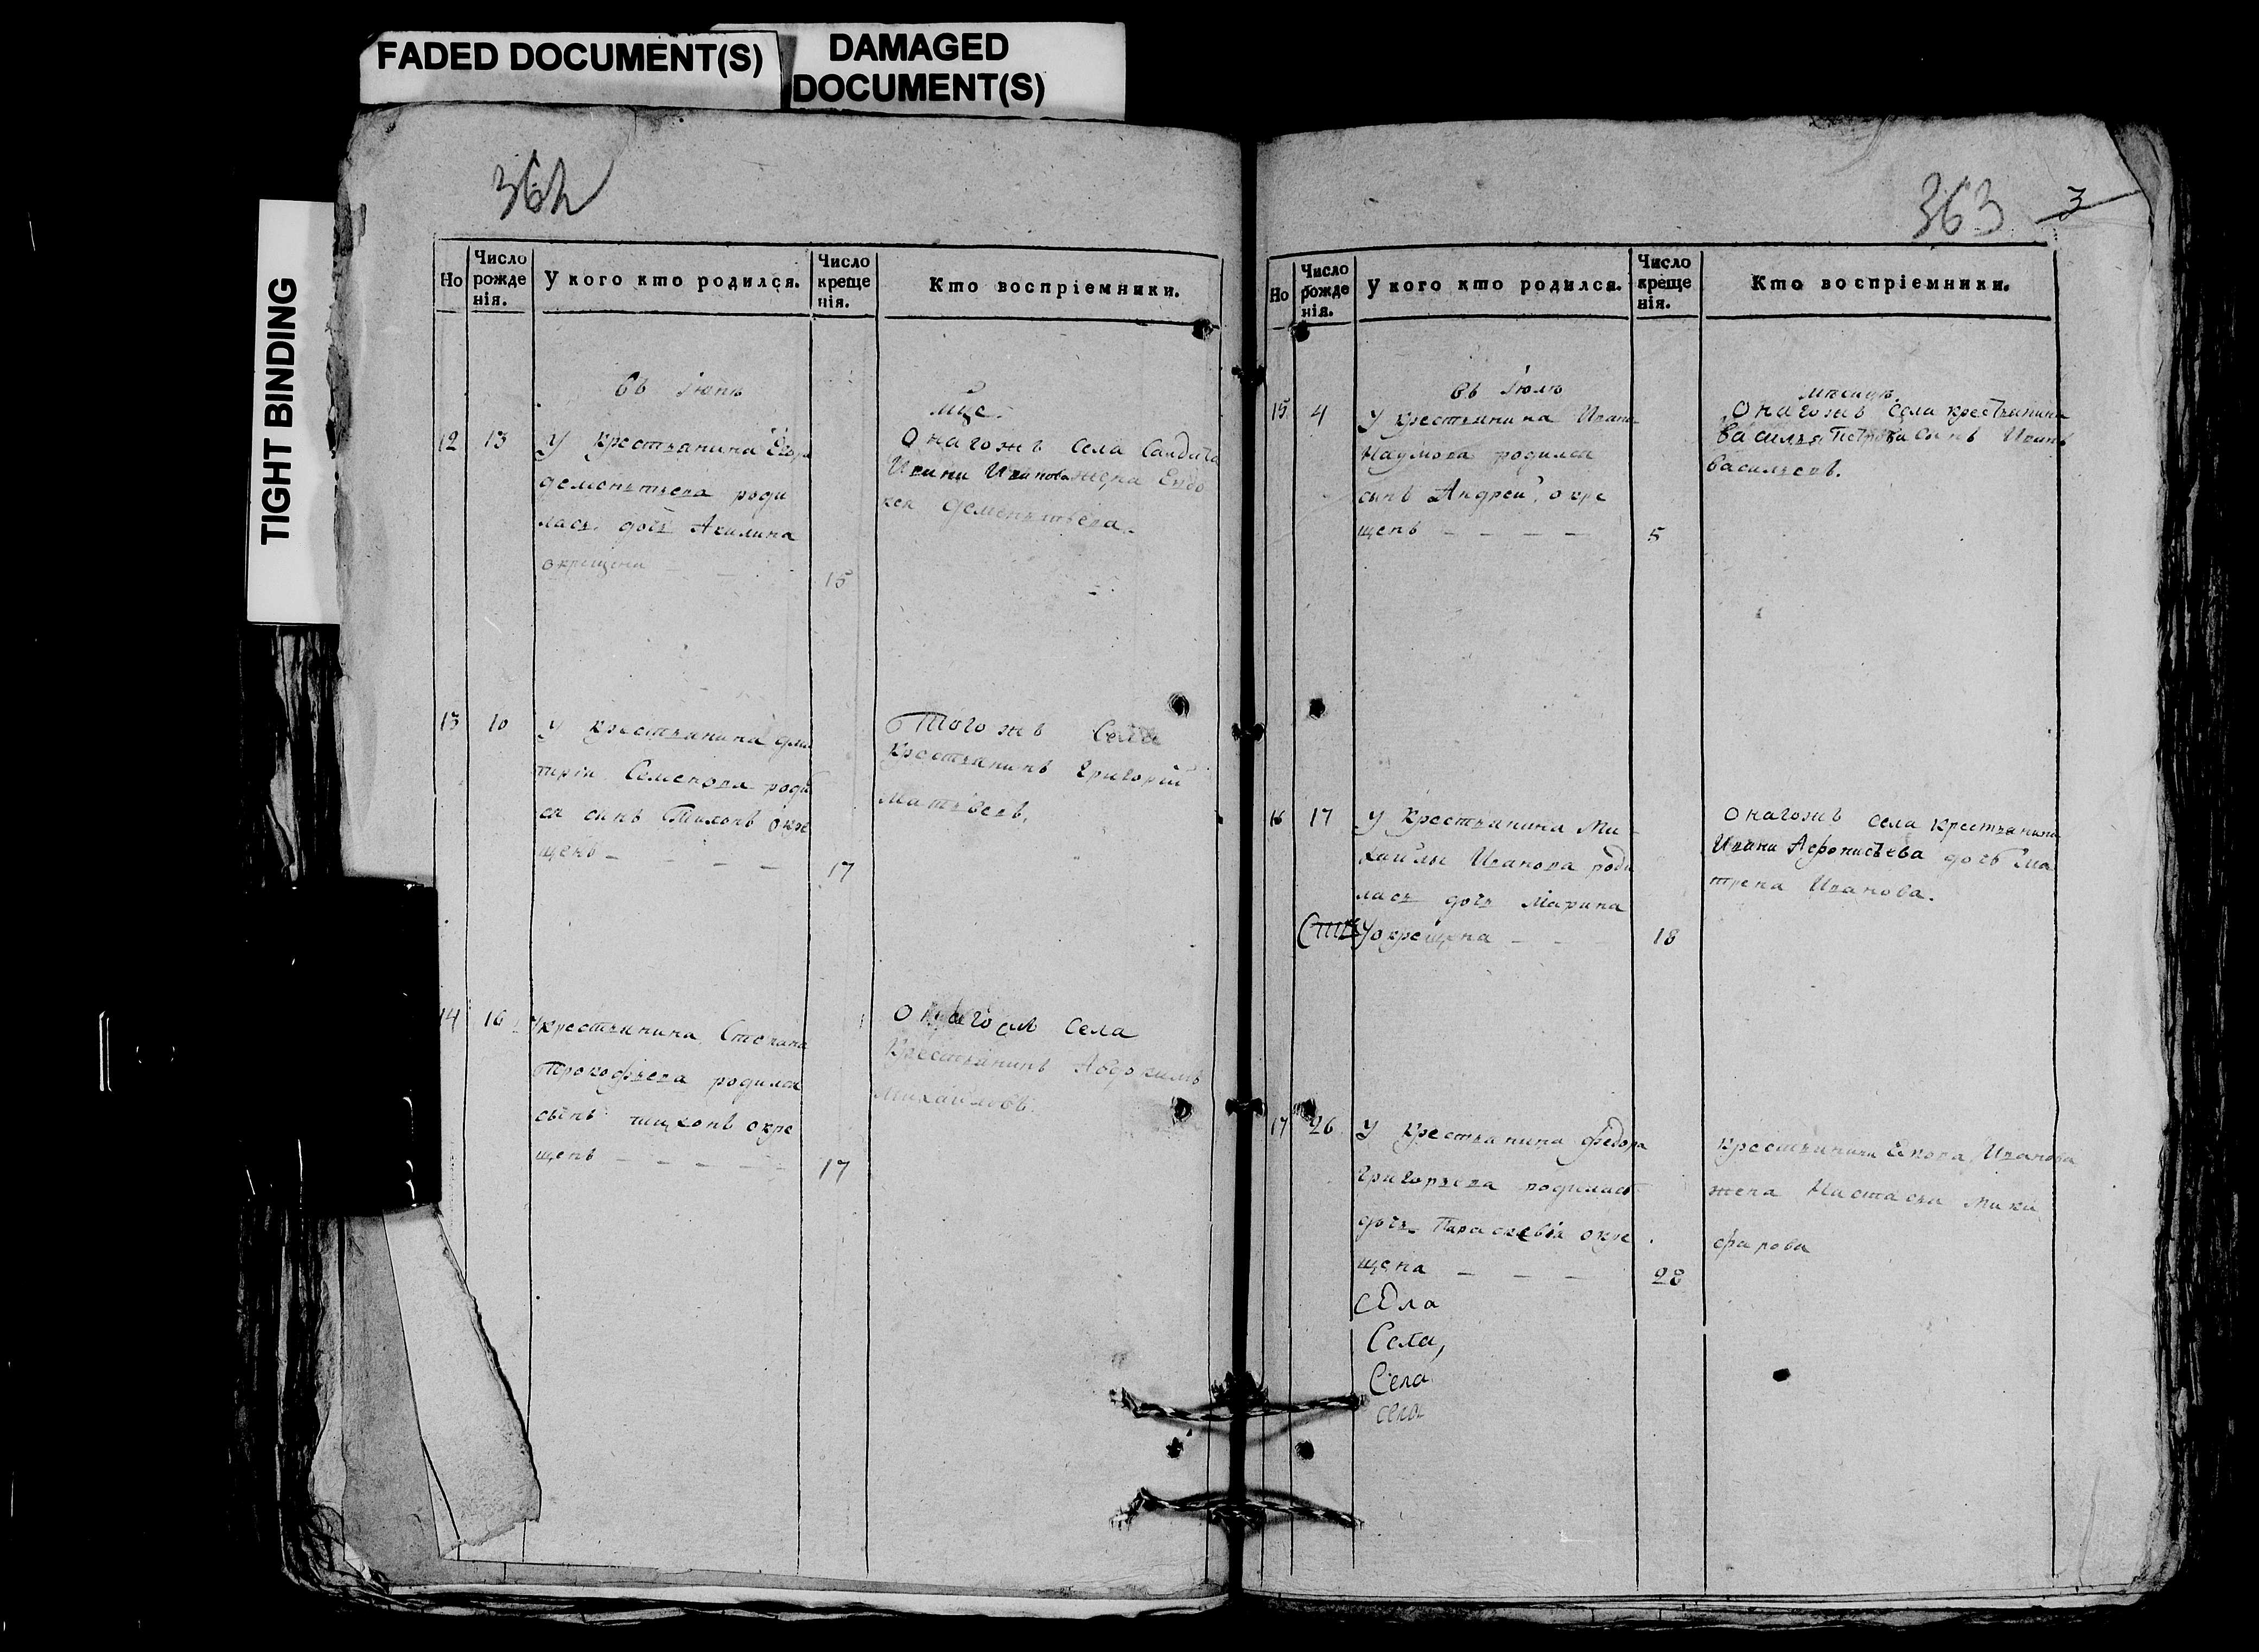 FADED DOCUMENT(S)
DAMAGED
DOCUMENT(S)
TIGHT BINDING
362
Но
Число
рожде
нія.
У кого кто родился.
Число
креще
нія.
Кто воспріемники.
въ Іюнѣ
мцѣ.
12 13 У крестьянина Егора
дементьева роди
лась дочь Акилина
окрещена — —
15
Онагожъ села Салдата
Ивана Иванова жена Евдо
кея дементьева.
13 10 У крестьянина дми
трія Семенова роди
ся сынъ Тихонъ окре
щенъ — — — —
17
Тогожъ Села
Крестьянинъ Григорій
Матвѣевъ.
14 16 У крестьянина Степана
Прокофьева родился
сынъ тихонъ окре
щенъ — — — — —
17
села
Крестьянинъ
Михайловъ.
363 3
Но
Число
рожде
нія.
У кого кто родился.
Число
креще
нія.
Кто воспріемники.
въ Іюлѣ
мѣсяцѣ.
15 4 У крестьянина Ивана
Наумова родился
сынъ Андрей, окре
щенъ — — — —
5
Онагожъ села крестьянина
Василья Петрова сынъ Иванъ
Васильевъ.
16 17 У крестьянина Ми-
хайлы Иванова роди
лась дочь Марина
окрещена — — —
18
Онагожъ села крестьянина
Ивана Афонисьева дочь Ма
трена Иванова.
17 26 У крестьянина Федора
Григорьева родилась
дочь Параскевія окре
щена — — —
28
крестьянина Иванова
жена Настасья Мики
фарова
села
Села,
Села
села